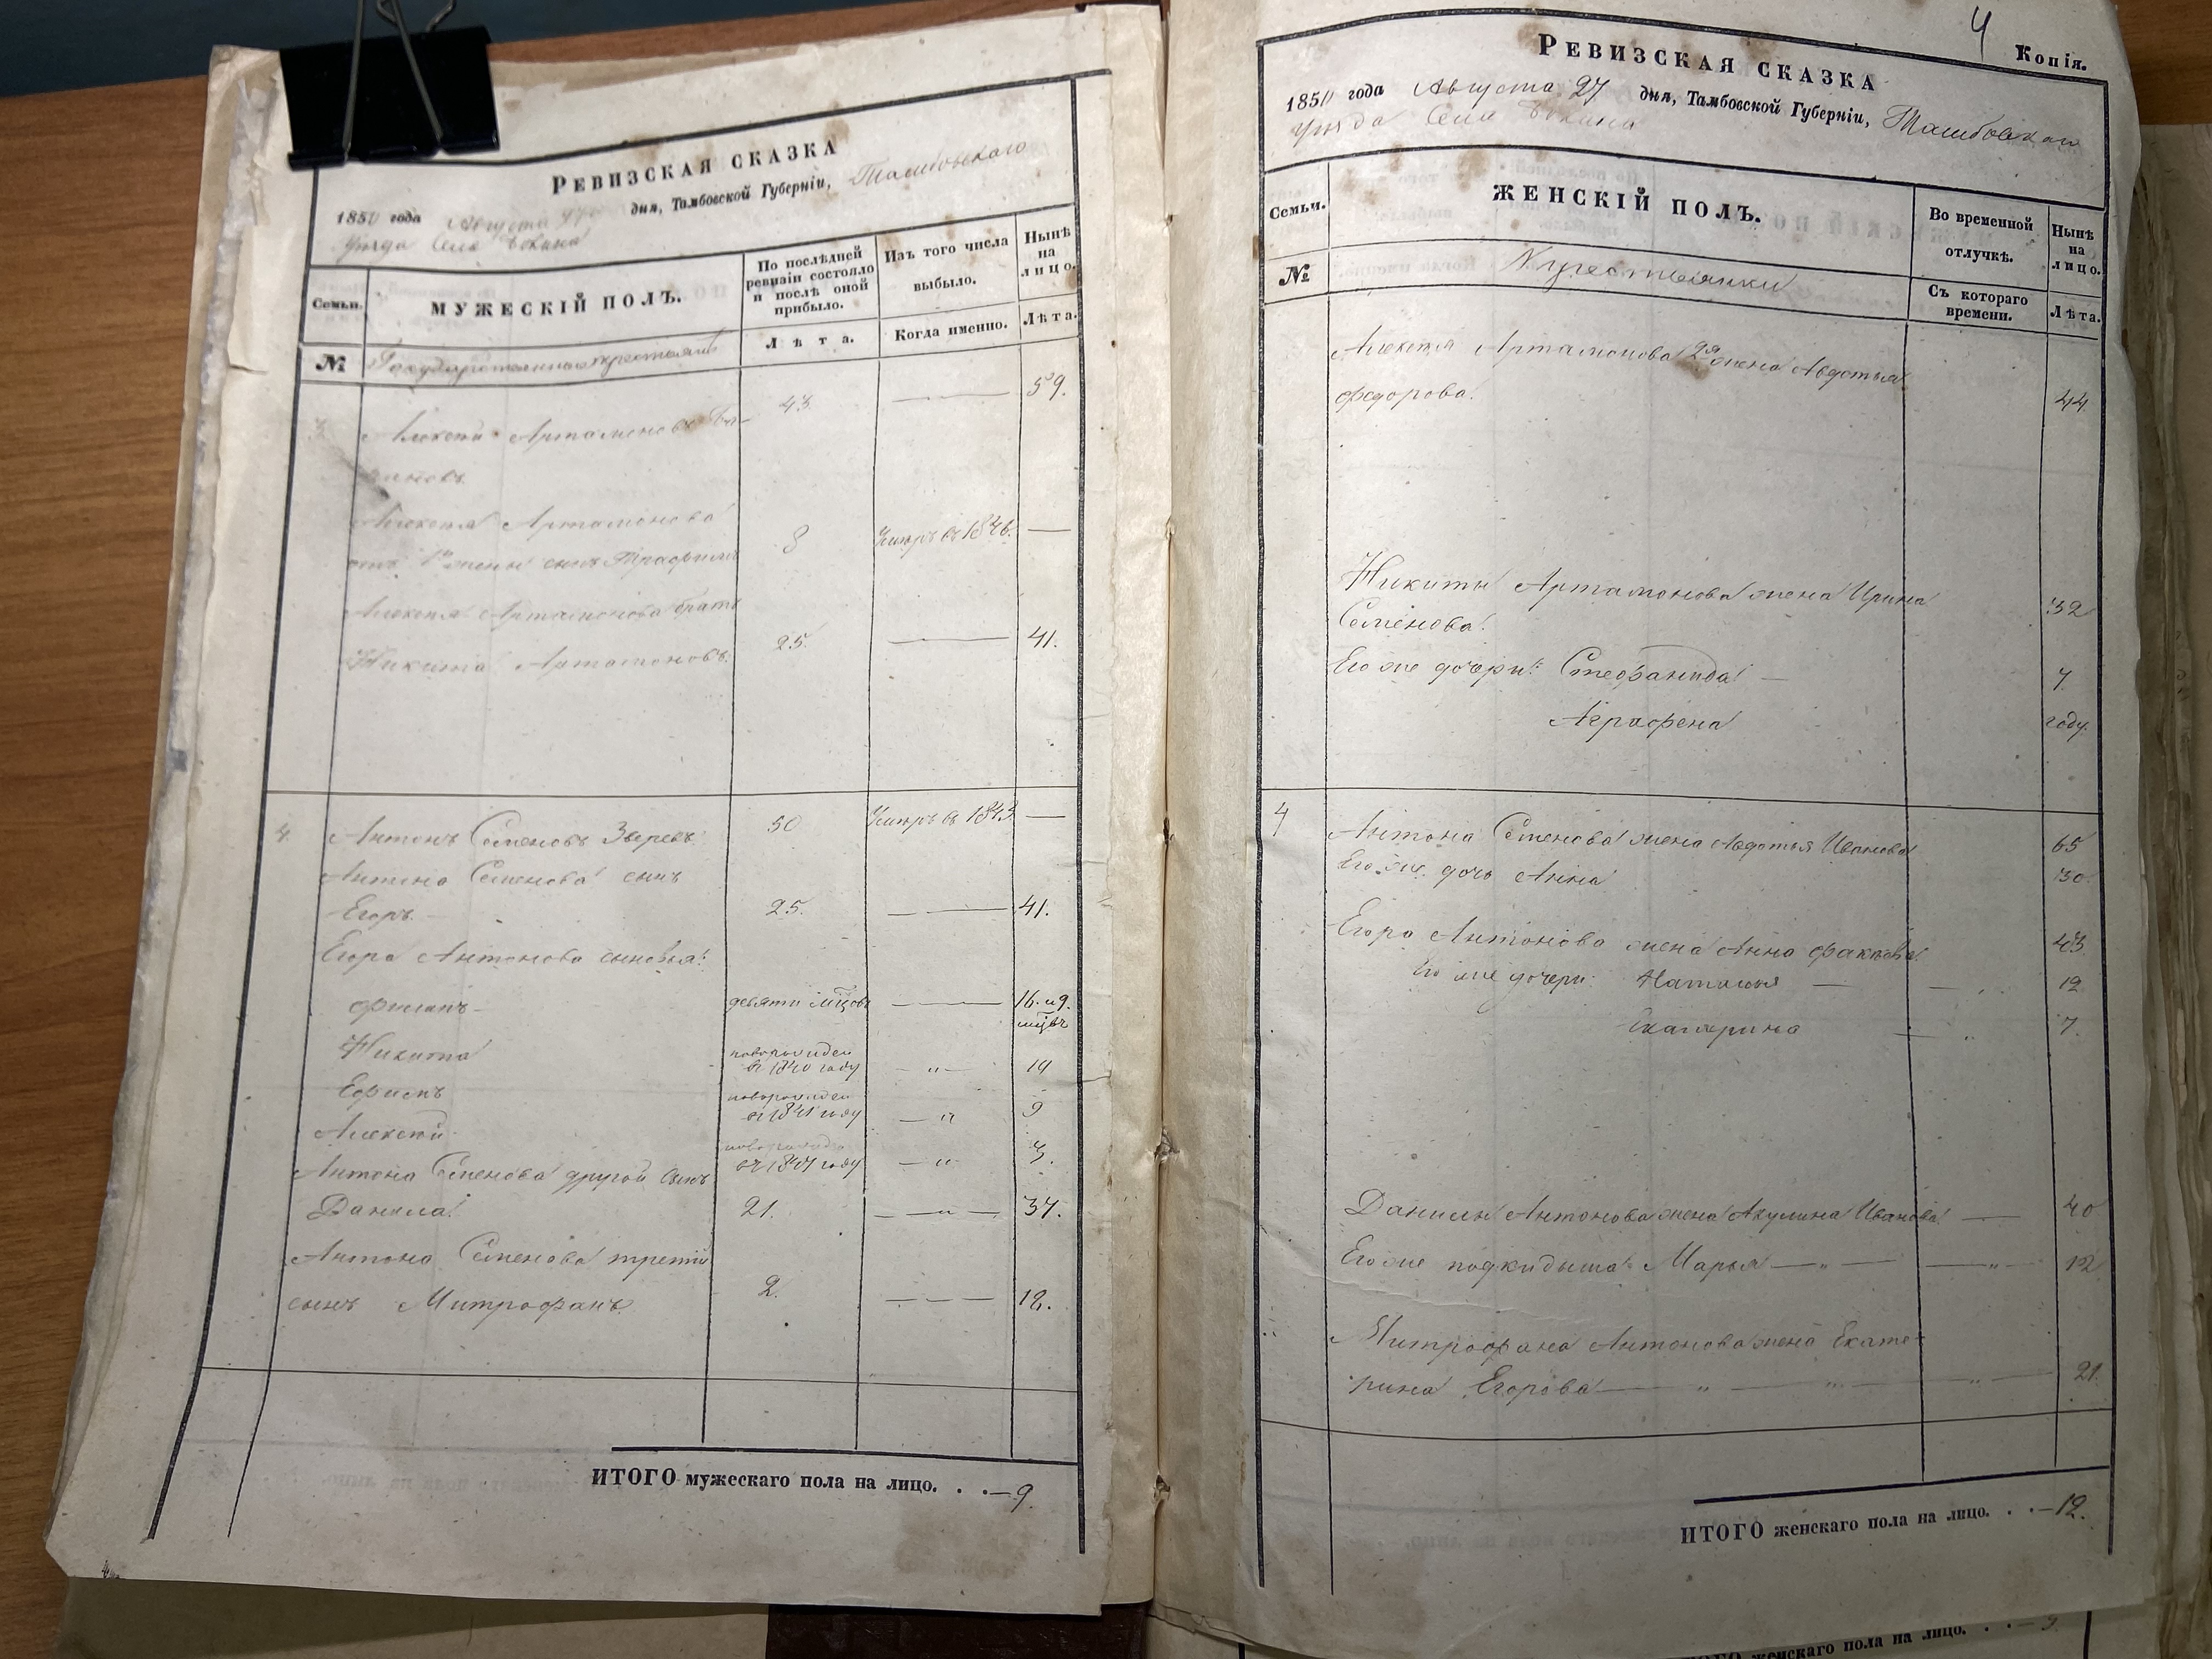 РЕВИЗСКАЯ СКАЗКА
1850 года Августа 27 дня, Тамбовской Губерніи, Тамбовскаго
уѣзда Села
Семьи.
МУЖЕСКІЙ ПОЛЪ.
По послѣдней ревизіи состояло и послѣ оной прибыло.
Изъ того числа выбыло.
Нынѣ на лицо.
№
Государственные крестьяне
Л ѣ т а.
Когда именно.
Лѣта.
Алексѣй Артамоновъ
43. — 59.
Алексѣя Артамонова
отъ 1й жены сынъ Трофимъ 8 Умеръ въ 1846. —
Алексѣя Артамонова братъ
Никита Артамоновъ. 25. — 41.
4. Антонъ Семеновъ Зверевъ 50 Умеръ въ 1843 —
Антона Семенова сынъ
Егоръ — 25. — 41.
Егора Антонова сыновья:
Филипъ — девяти мцовъ — 16. и 9. мцвъ
Никита новорожден въ 1840 году — „ —
Ефимъ новорожден въ 1841 году — „ 9
Алексѣй году — „ 3.
Антона Семенова другой сынъ
Данила 21. — „ — 37.
Антона Семенова третій
сынъ Митрофанъ. 2. — — — 18.
ИТОГО мужескаго пола на лицо. . . — 9.
4 Копія.
РЕВИЗСКАЯ СКАЗКА
1850 года Августа 27 дня, Тамбовской Губерніи, Тамбовскаго
уѣзда Села
Семьи.
ЖЕНСКІЙ ПОЛЪ.
Во временной отлучкѣ.
Нынѣ на лицо.
№
Крестьянки
Съ котораго времени.
Лѣта.
Алексѣя Артамонова 2я жена Авдотья
Федорова. 44
Никиты Артамонова жена Ирина
Семенова. 32
Его же дочери: Стефанида — 7.
Аграфена году.
4 Антона Семенова жена Авдотья Иванова 65
Его же дочь Анна 30.
Егора Антонова жена Анна 43
Его же дочери: Наталья — — 12
Екатерина — „ 7.
Данилы Антонова жена Акулина Иванова — 40
Его же подкидыша: Марья — „ — — „ — 12
Митрофана Антонова жена Екате-
рина Егорова — „ — „ — „ — 21.
ИТОГО женскаго пола на лицо. . . — 12.
женскаго пола на лицо.